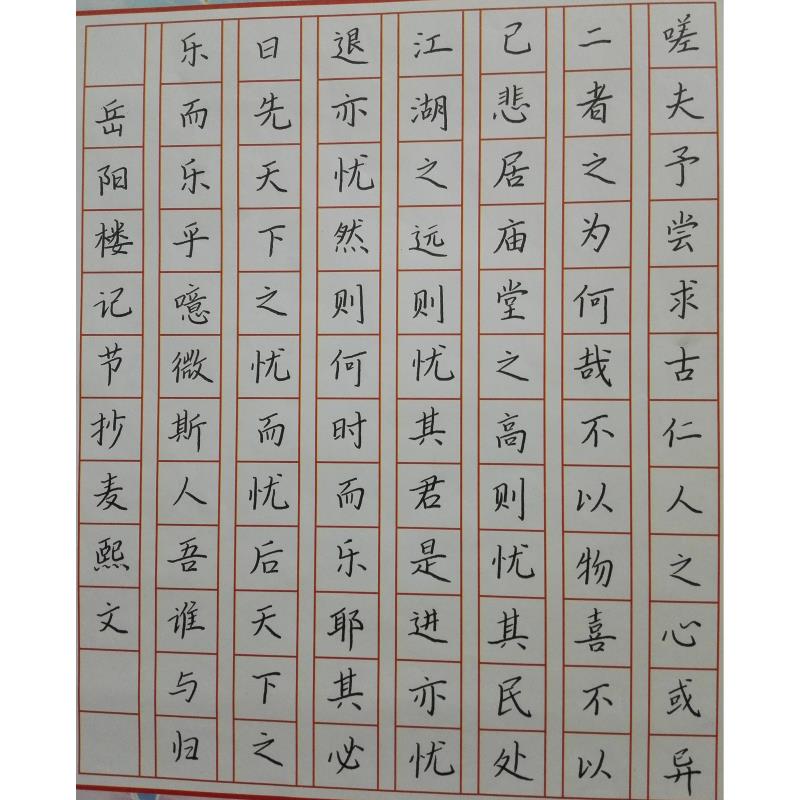 嗟夫予尝求古仁人之心或异
二者之为何哉不以物喜不以
己悲居庙堂之高则忧其民处
江湖之远则忧其君是进亦忧
退亦忧然则何时而乐耶其必
曰先天下之忧而忧后天下之
乐而乐乎噫微斯人吾谁与归
岳阳楼记节抄麦熙文